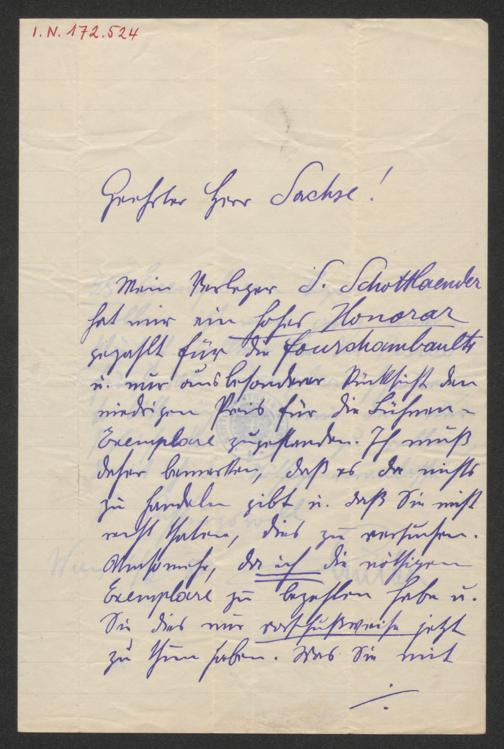 I.N. 172.524
Geehrter Herr Sachse!
Mein Verleger S. Schottlaender
hat mir ein hohes Honorar
gezahlt für die Fourchambaults
u. nur aus besonderer Rücksicht den
niedrigen Preis für die Bühnen-
Exemplare zugestanden. Ich muß
daher bemerken, daß es da nichts
zu handeln gibt u. daß Sie nicht
recht thaten, dies zu versuchen.
Umsomehr, da ich die nöthigen
Exemplare zu bezahlen habe u.
Sie dies nur vorschußweise jetzt
zu thun haben. Was Sie mit